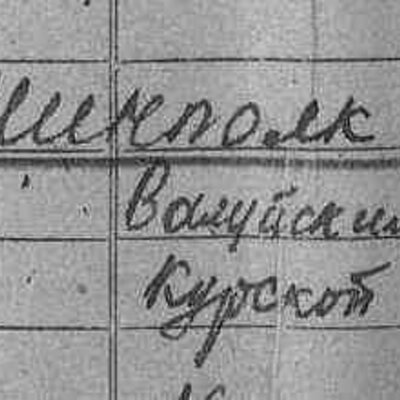 полк
Валуйски
Курской